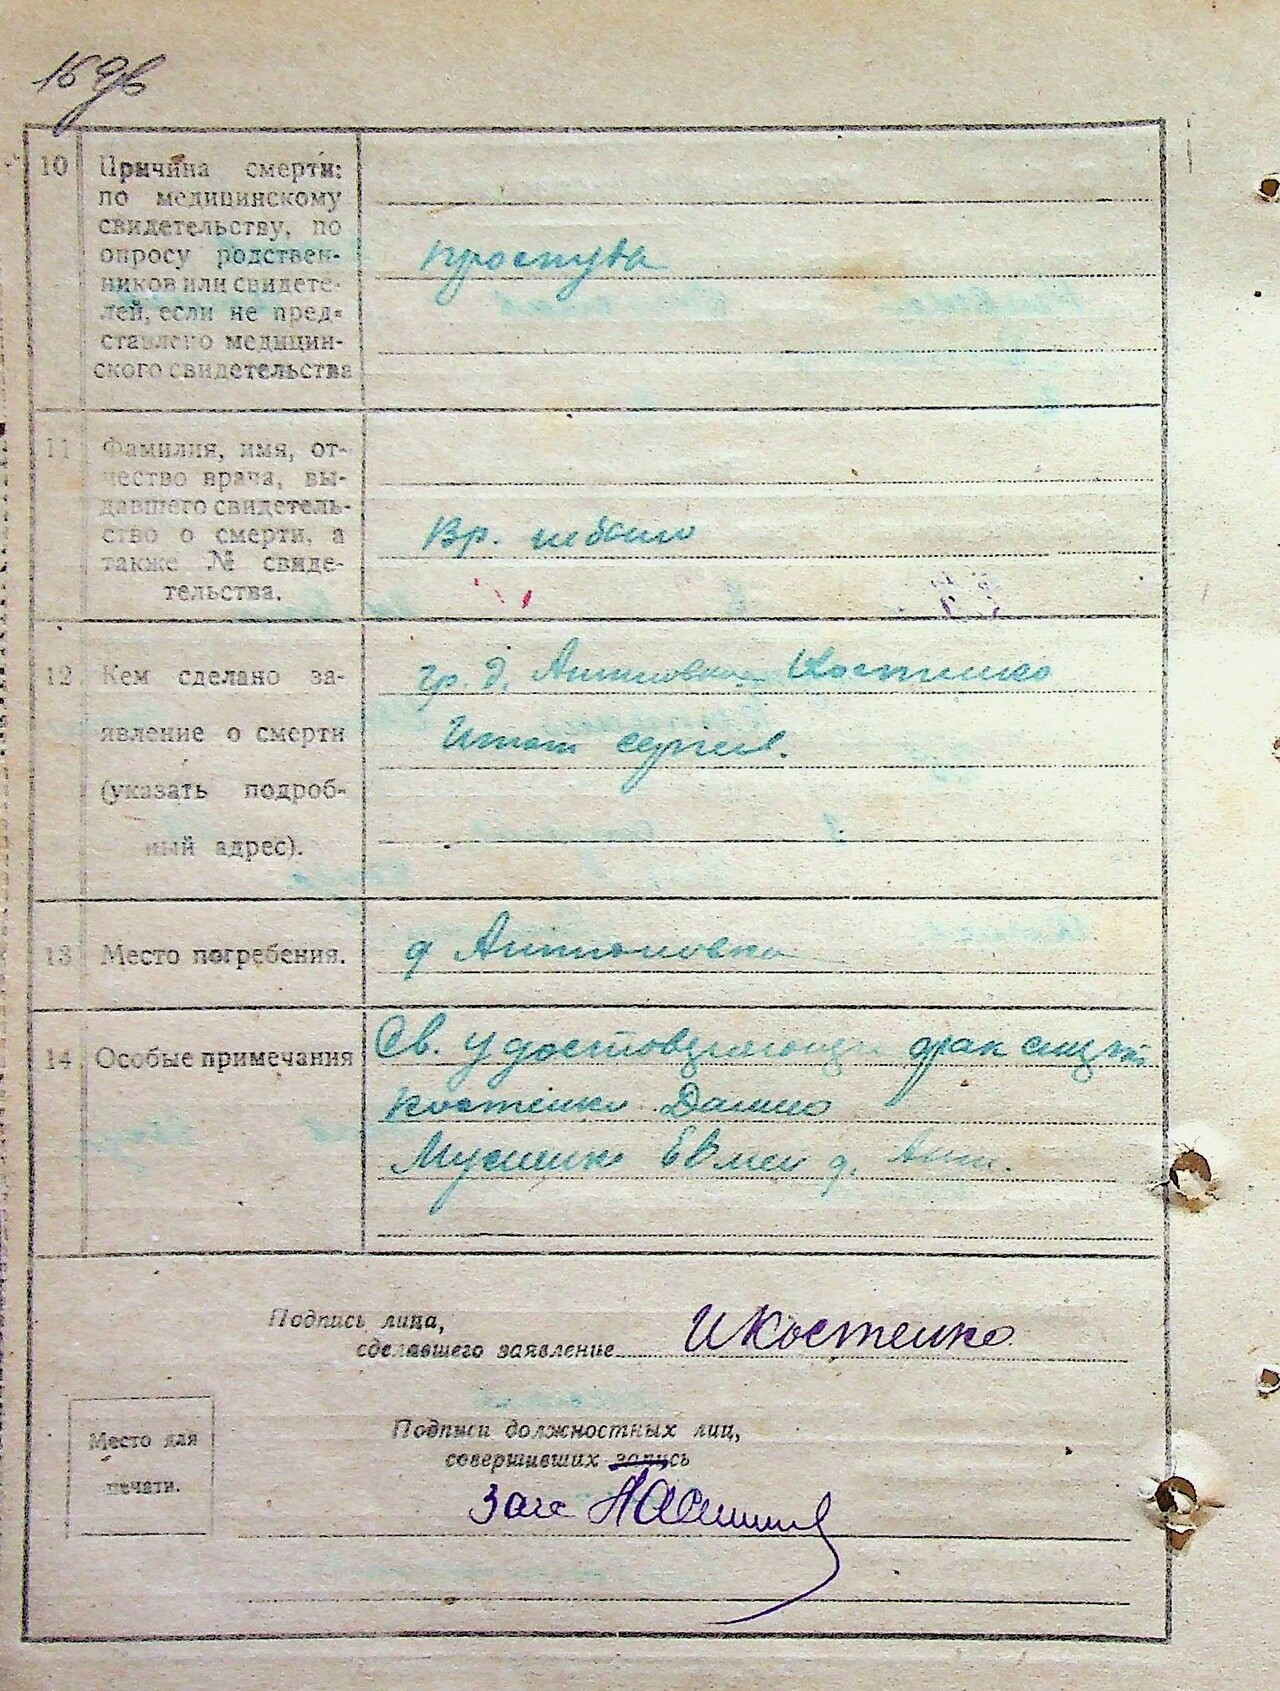 10 Причина смерти:
по медицинскому
свидетельству, по
опросу родствен-
ников или свидете-
лей, если не пред-
ставлено медицин-
ского свидетельства
простуда
11 Фамилия, имя, от-
чество врача, вы-
давшего свидетель-
ство о смерти, а
также № свиде-
тельства.
Вр. небыло
12 Кем сделано за-
явление о смерти
(указать подроб-
ный адрес).
гр. д. Антиовка Костенко
Игнат Сергеев.
13 Место погребения.
д Антоновка
14 Особые примечания
Св. удостоверяющи фак смерти
Костенко Данило
Мусиенко д. Ант.
Подпись лица,
сделавшего заявление ИКостенко
Место для
печати.
Подписи должностных лиц,
совершивших запись
Загс